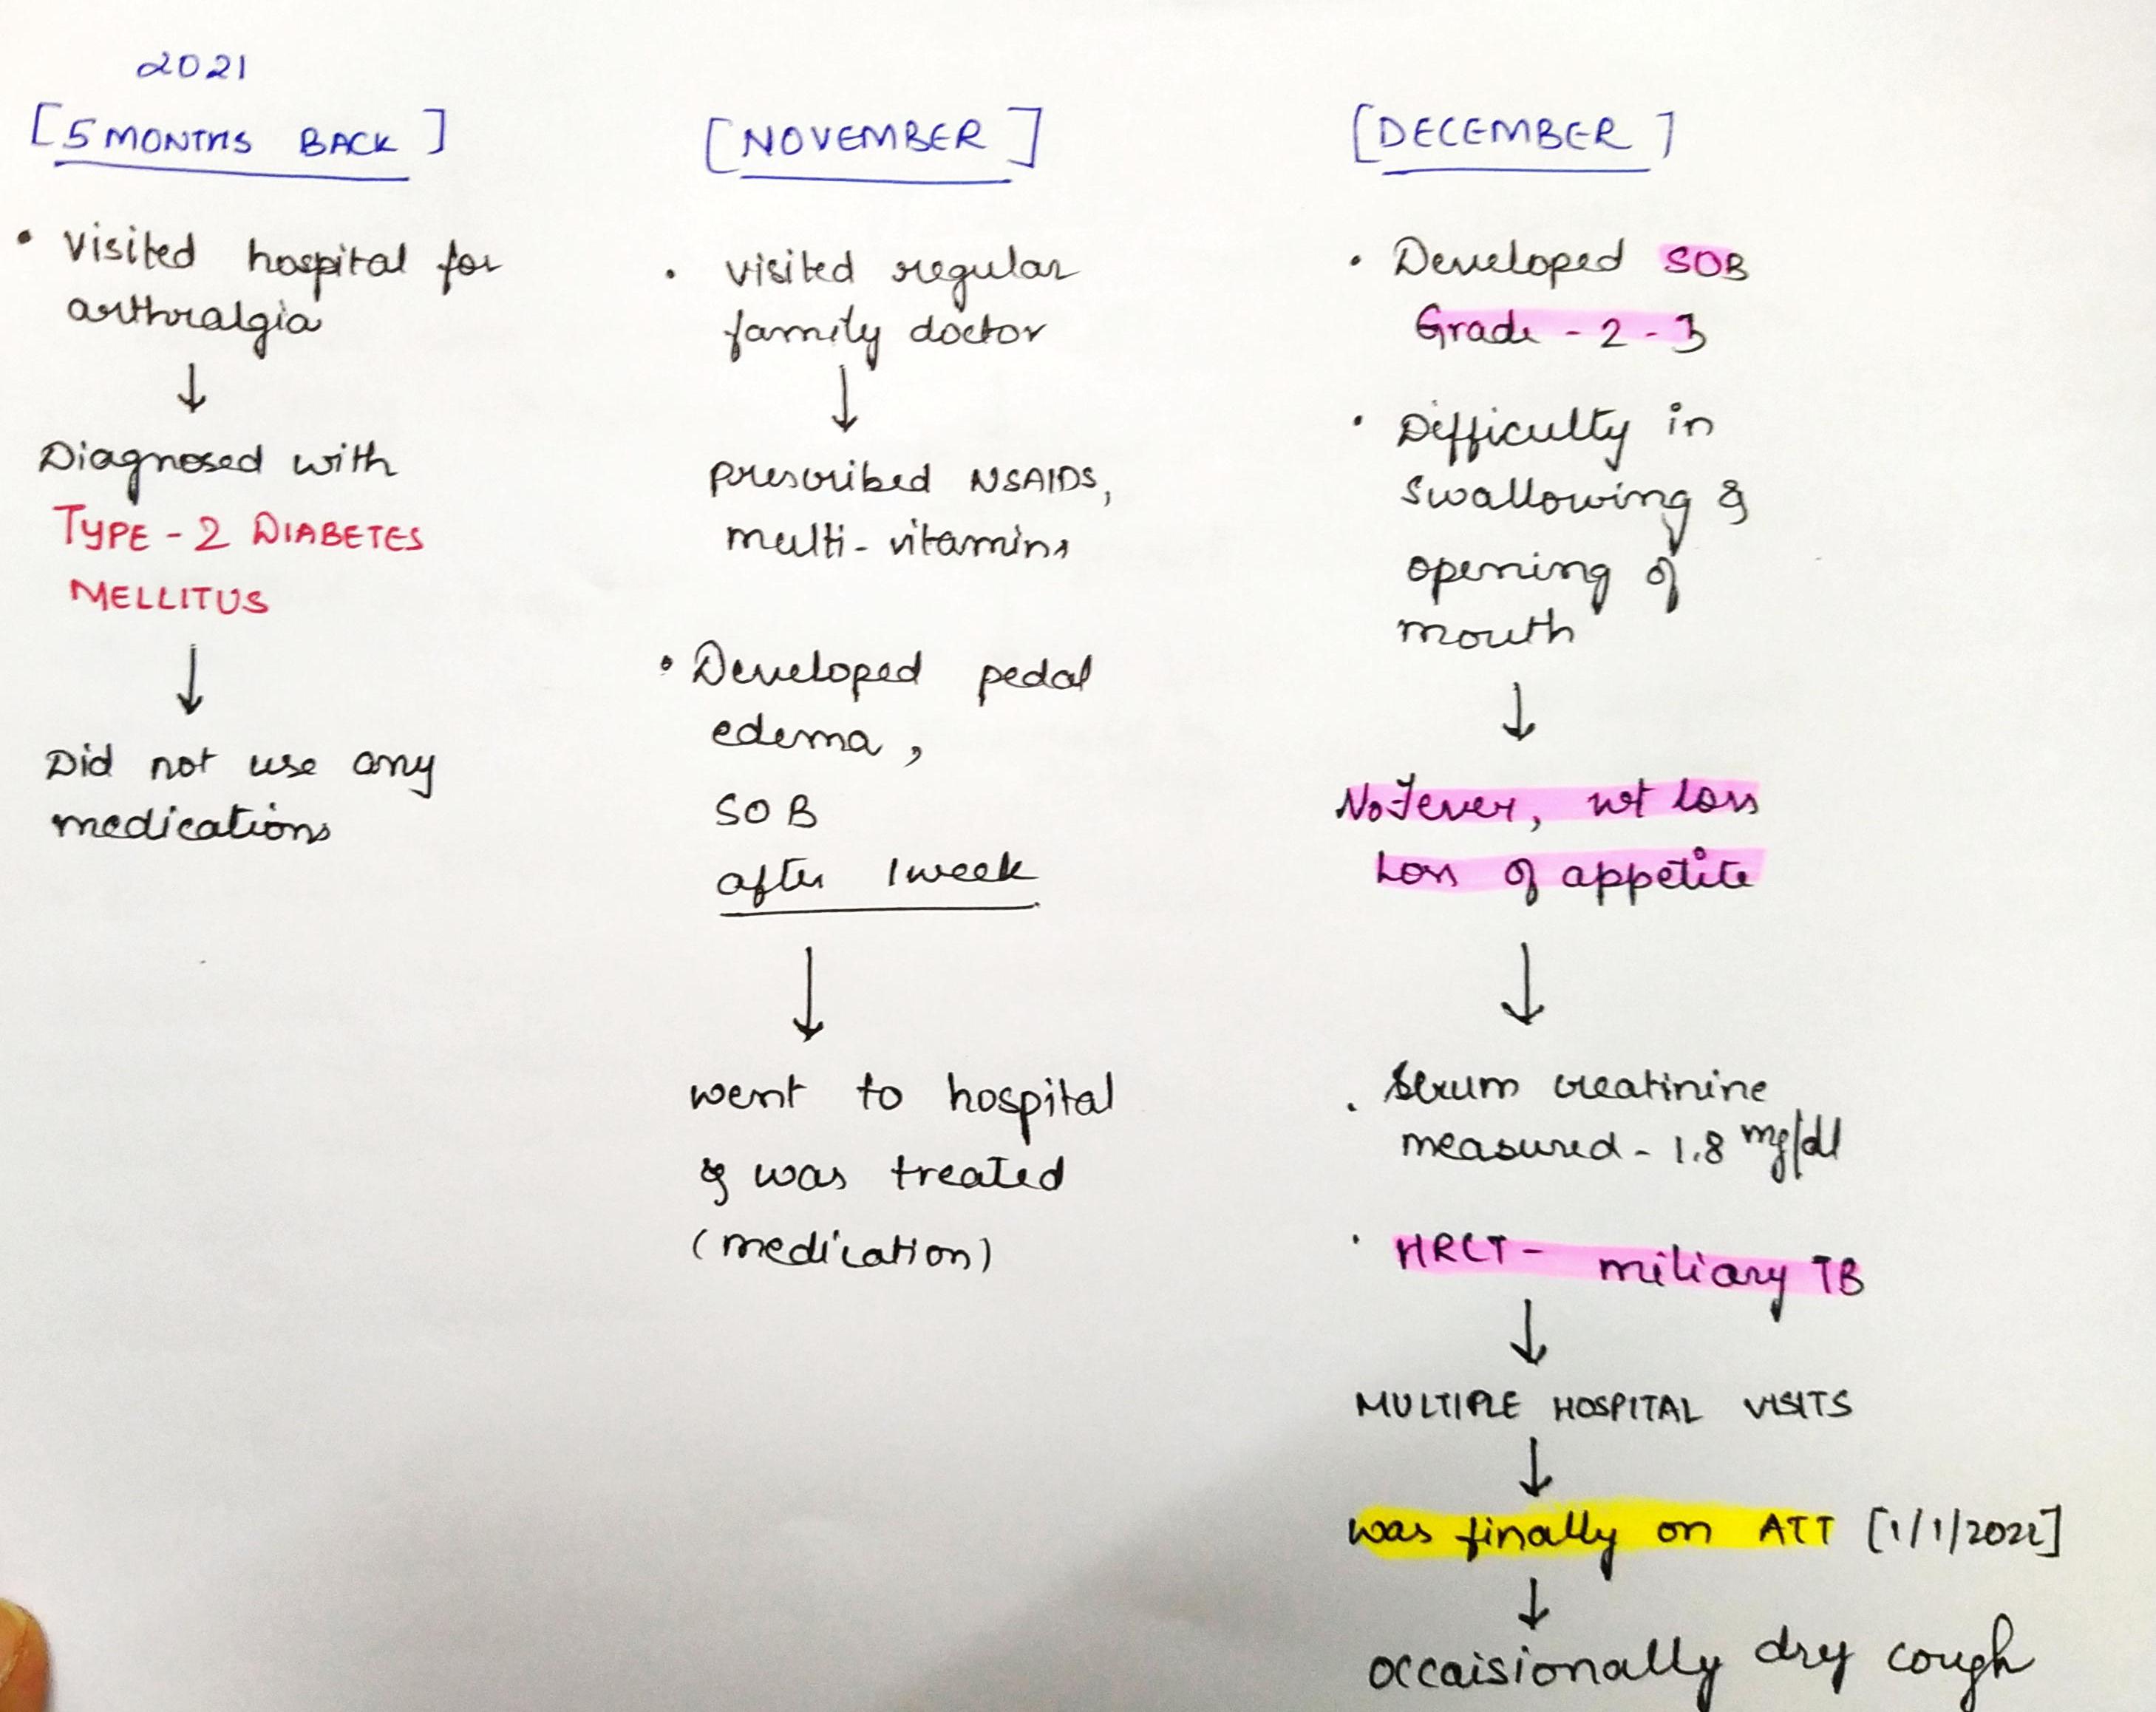 2021
[5 MONTHS BACK]
• Visited hospital for
arthralgia
↓
Diagnosed with
TYPE-2 DIABETES
MELLITUS
↓
Did not use any
medications
[NOVEMBER]
• visited regular
family doctor
↓
prescribed NSAIDS,
multi-vitamins
• Developed pedal
edema,
SOB
after 1 week
↓
went to hospital
& was treated
(medication)
[DECEMBER]
• Developed SOB
Grade - 2 - 3
• Difficulty in
swallowing &
opening of
mouth
↓
No Fever, wt loss
Loss of appetite
↓
• Serum creatinine
measured - 1.8 mg/dl
• HRCT - miliary TB
↓
MULTIPLE HOSPITAL VISITS
↓
was finally on ATT [1/1/2022]
↓
occaisionally dry cough